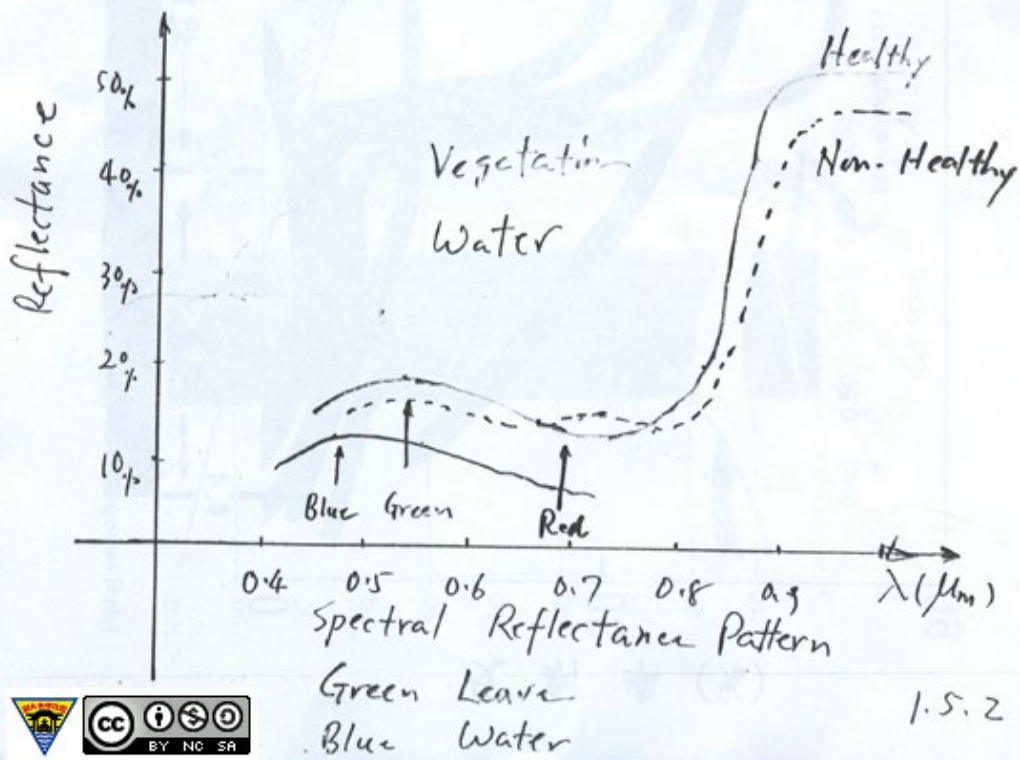 Reflectance
50%
40%
30%
20%
10%
Healthy
Non-Healthy
Vegetation
Water
Blue Green Red
0.4 0.5 0.6 0.7 0.8 0.9 λ(μm)
Spectral Reflectance Pattern
Green Leave
Blue Water
1.5.2
cc
BY NC SA